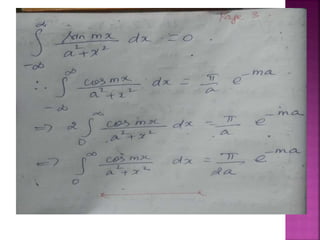 Page 3
∫_{-∞}^{∞} sin mx / (a² + x²) dx = 0.
∴ ∫_{-∞}^{∞} cos mx / (a² + x²) dx = π/a e^{-ma}
⇒ 2 ∫_{0}^{∞} cos mx / (a² + x²) dx = π/a e^{-ma}
⇒ ∫_{0}^{∞} cos mx / (a² + x²) dx = π/2a e^{-ma}